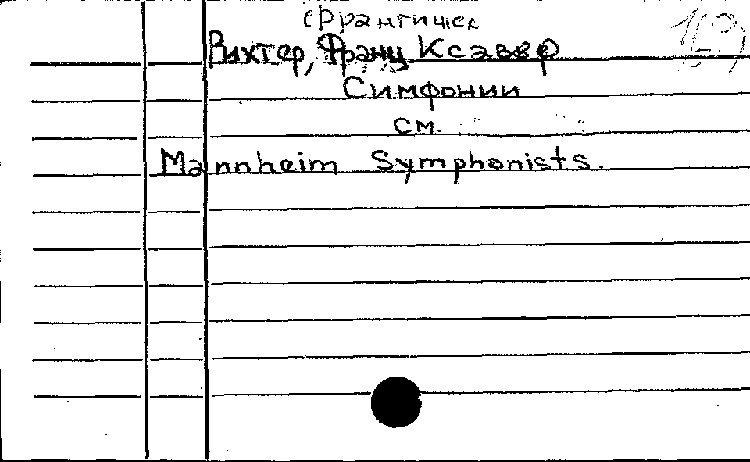 Франтишек
Рихтер, Франц Ксавер
Симфонии
см.
Mannheim Symphonists.